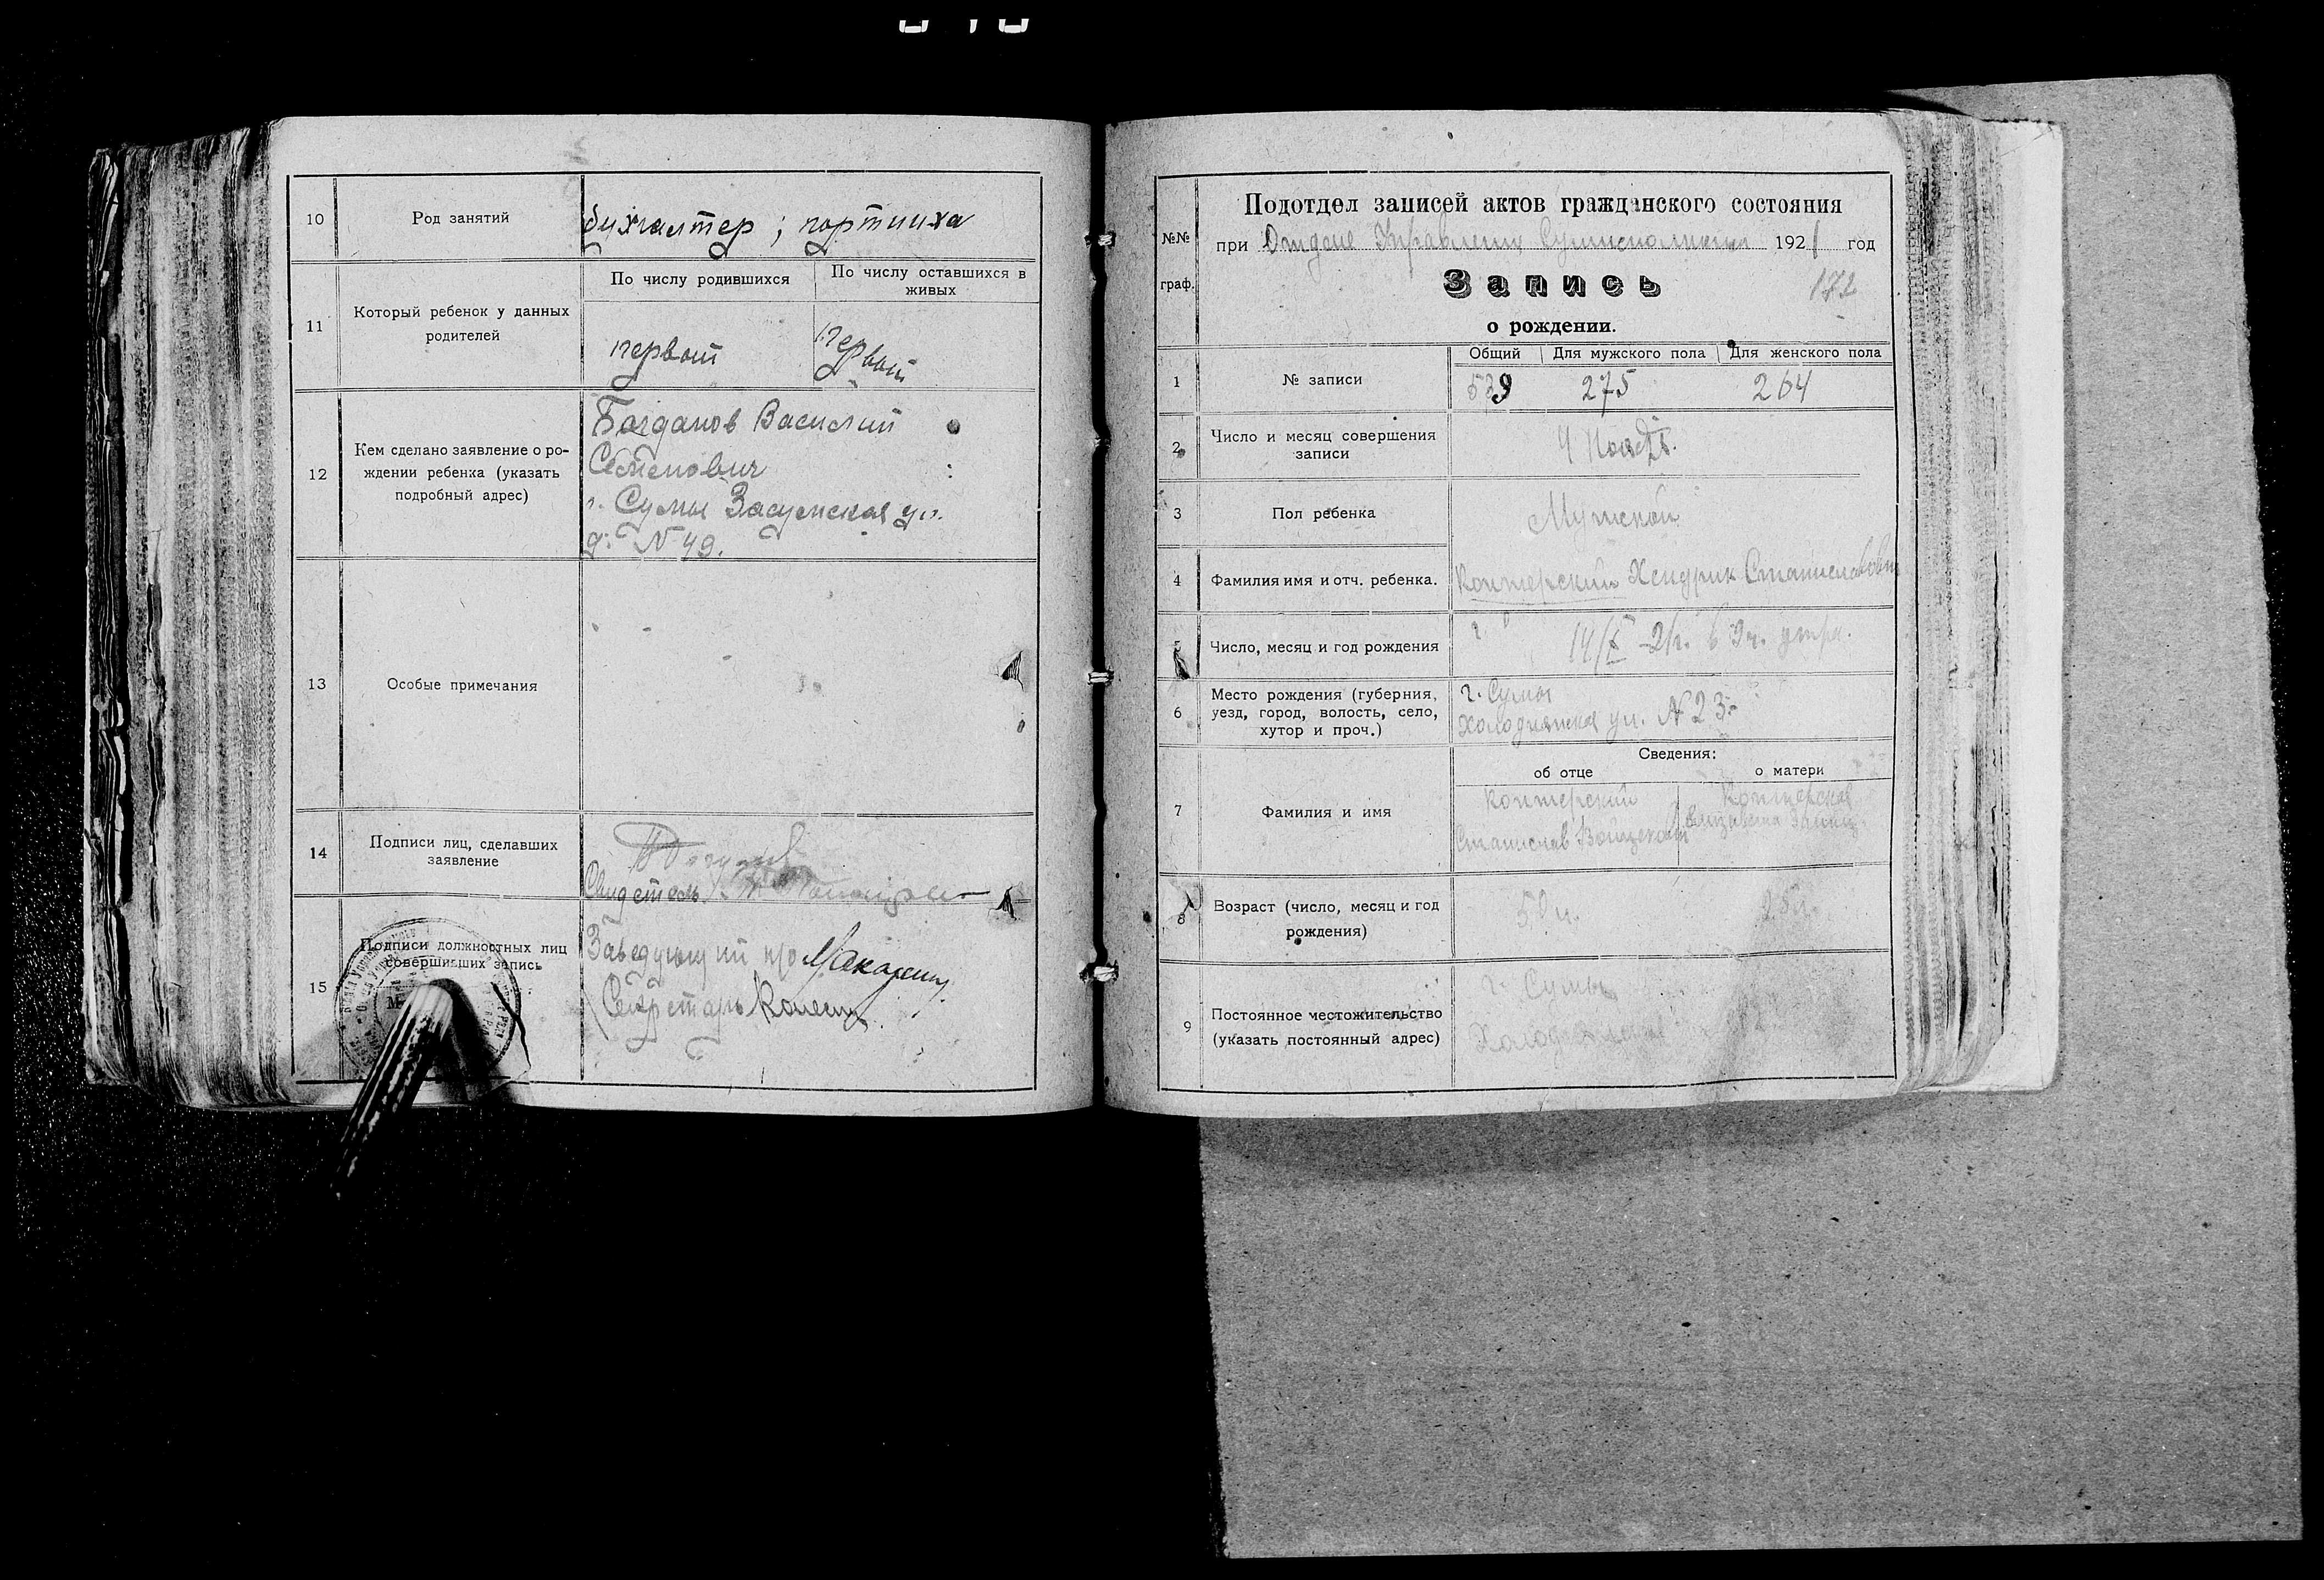 10
Род занятий
бухгалтер; портниха
11
Который ребенок у данных
родителей
По числу родившихся
По числу оставшихся в
живых
первый
первый
12
Кем сделано заявление о ро-
ждении ребенка (указать
подробный адрес)
Богданов Василий
Семенович
г. Сумы Засумская ул.
д. N 49.
13
Особые примечания
14
Подписи лиц, сделавших
заявление
Свидетель
15
Подписи должностных лиц
совершивших запись
Заведующий п/о
Секретарь
№№
граф.
Подотдел записей актов гражданского состояния
при Отделе Управления 1921 год
Запись
172
о рождении.
1
№ записи
Общий
Для мужского пола
Для женского пола
539
275
264
2
Число и месяц совершения
записи
4
3
Пол ребенка
Мужской
4
Фамилия имя и отч. ребенка.
Хендрик Станиславович
5
Число, месяц и год рождения
14/X -21г. в 9 ч. утра.
6
Место рождения (губерния,
уезд, город, волость, село,
хутор и проч.)
г. Сумы
ул. N 23
Сведения:
об отце
о матери
7
Фамилия и имя
Станислав
8
Возраст (число, месяц и год
рождения)
9
Постоянное местожительство
(указать постоянный адрес)
г. Сумы